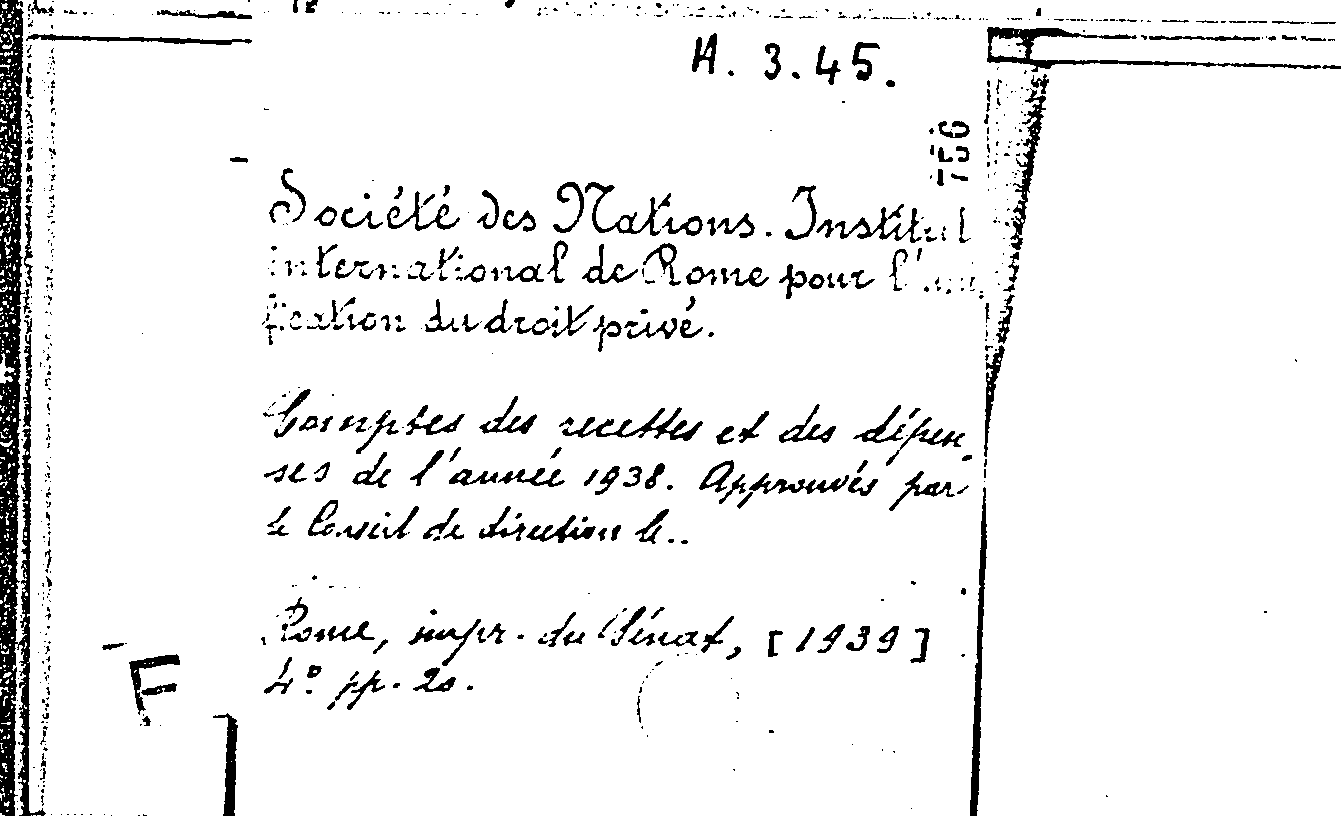 H. 3.45.
756
Société des Nations. Institut
international de Rome pour l'uni
fication du droit privé.
Comptes des recettes et des dépen
ses de l'année 1938. Approuvés par
le Conseil de direction le..
Rome, impr. du Sénat, [1939]
4º pp. 20.
F